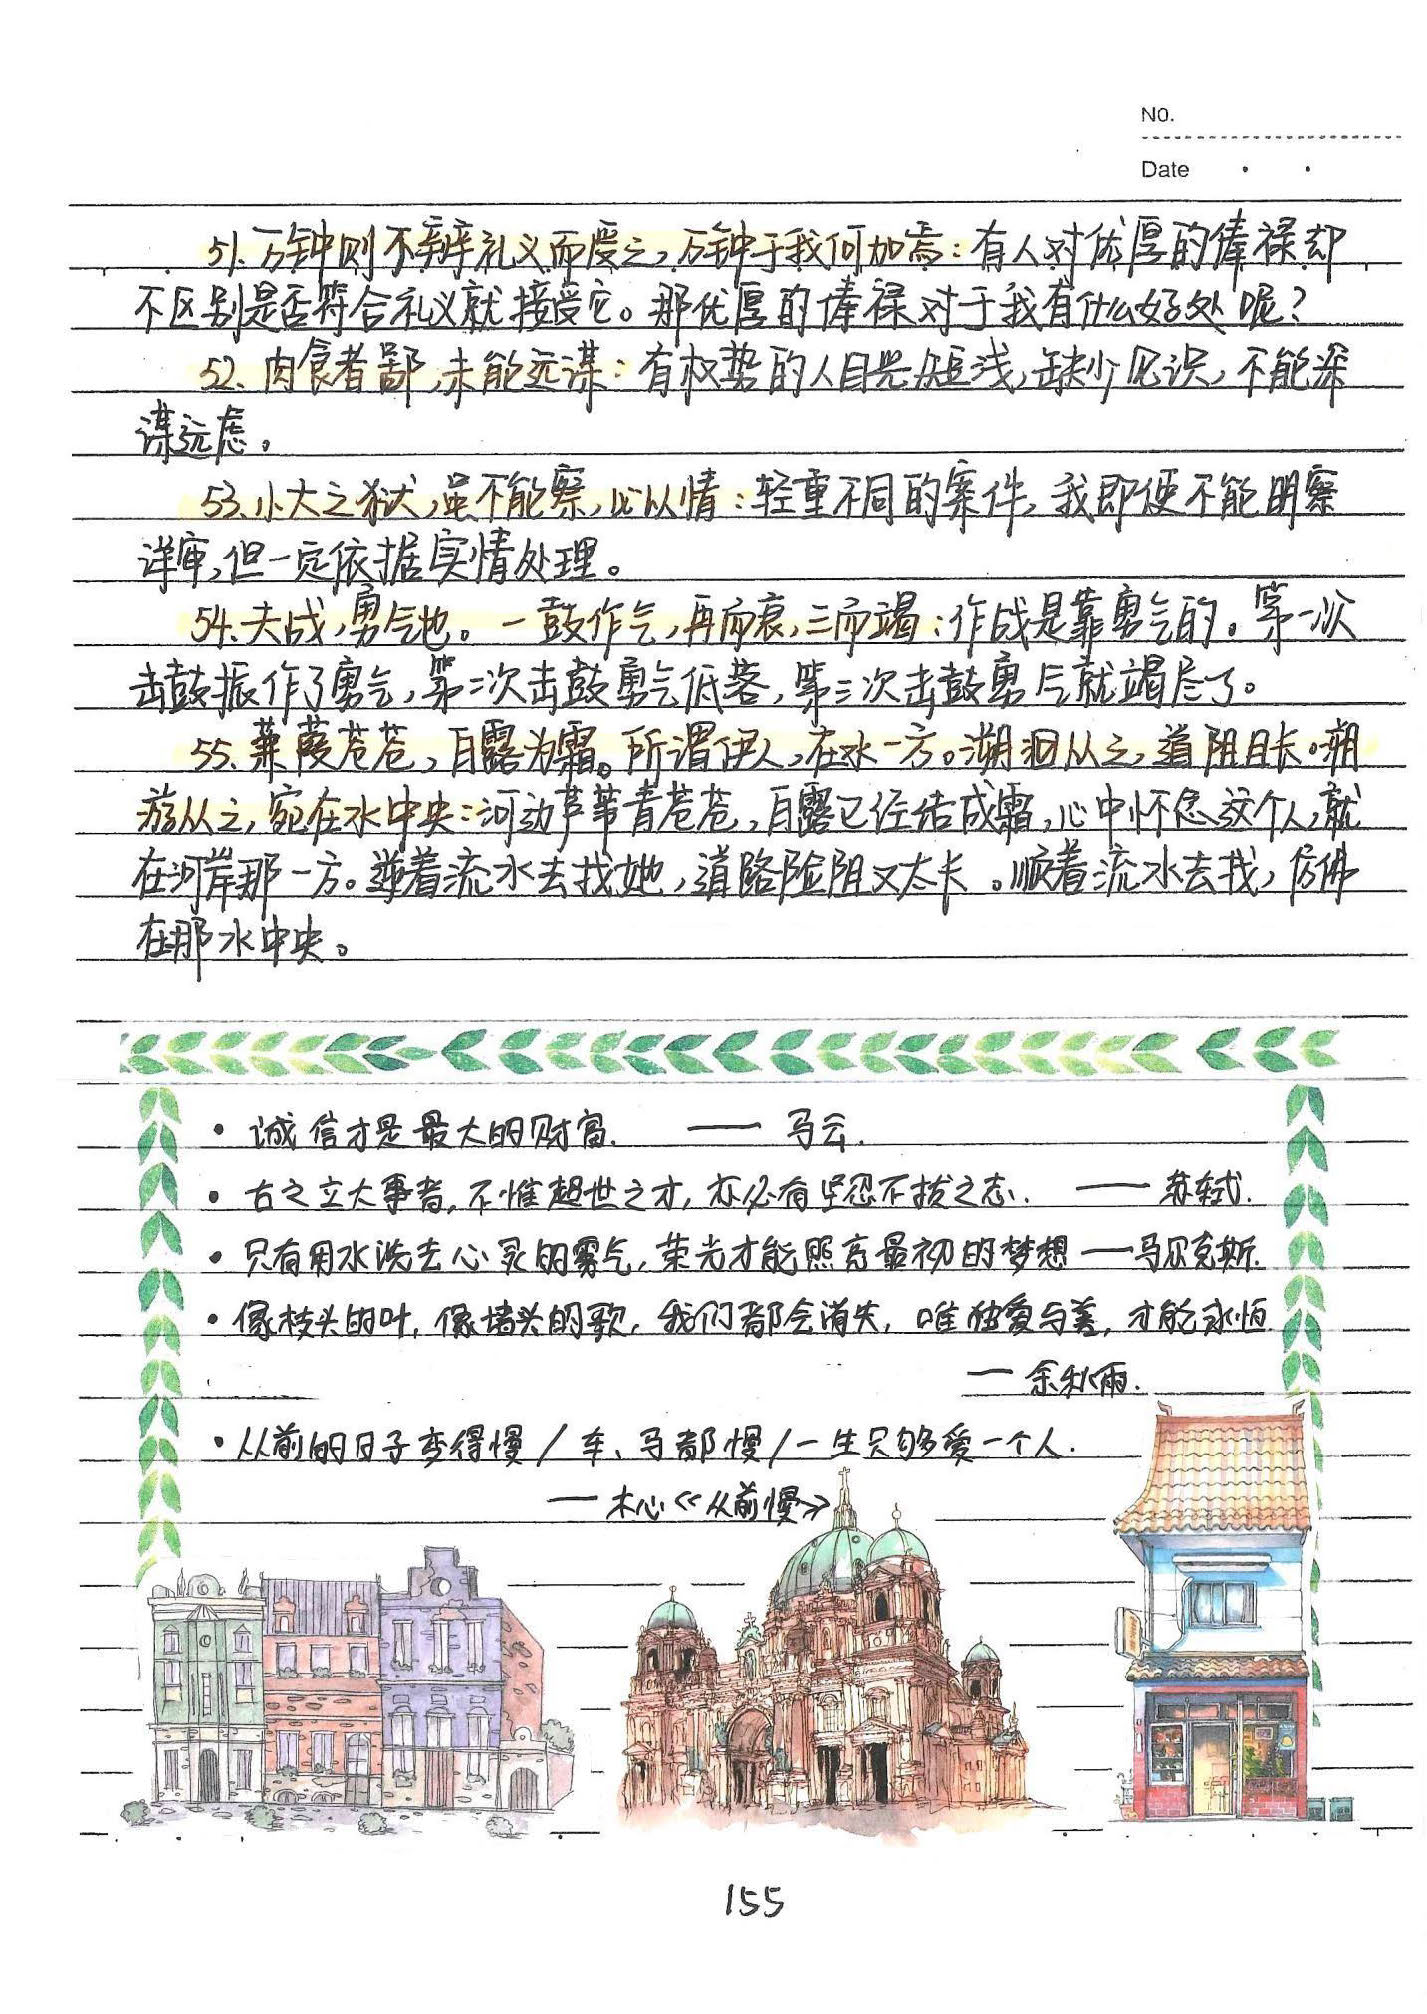 NO.
Date
51. 万钟则不辩礼义而受之，万钟于我何加焉：有人对优厚的俸禄却
不区别是否符合礼义就接受它。那优厚的俸禄对于我有什么好处呢？
52. 肉食者鄙，未能远谋：有权势的人目光短浅，缺少见识，不能深
谋远虑。
53. 小大之狱，虽不能察，必以情：轻重不同的案件，我即便不能明察
详审，但一定依据实情处理。
54. 夫战，勇气也。一鼓作气，再而衰，三而竭：作战是靠勇气的。第一次
击鼓振作了勇气，第二次击鼓勇气低落，第三次击鼓勇气就竭尽了。
55. 蒹葭苍苍，白露为霜。所谓伊人，在水一方。溯洄从之，道阻且长。溯
游从之，宛在水中央：河边芦苇青苍苍，白露已经结成霜，心中怀念这个人，就
在河岸那一方。逆着流水去找她，道路险阻又太长。顺着流水去找，仿佛
在那水中央。
• 诚信才是最大的财富. —— 马云.
• 古之立大事者，不惟超世之才，亦必有坚忍不拔之志. —— 苏轼.
• 只有用水洗去心灵的雾气，荣光才能照亮最初的梦想 ——马尔克斯.
• 像枝头的叶，像墙头的歌，我们都会消失，唯独爱与善，才能永恒
— 余秋雨.
• 从前的日子变得慢 / 车、马都慢 / 一生只够爱一个人.
— 木心《从前慢》
155